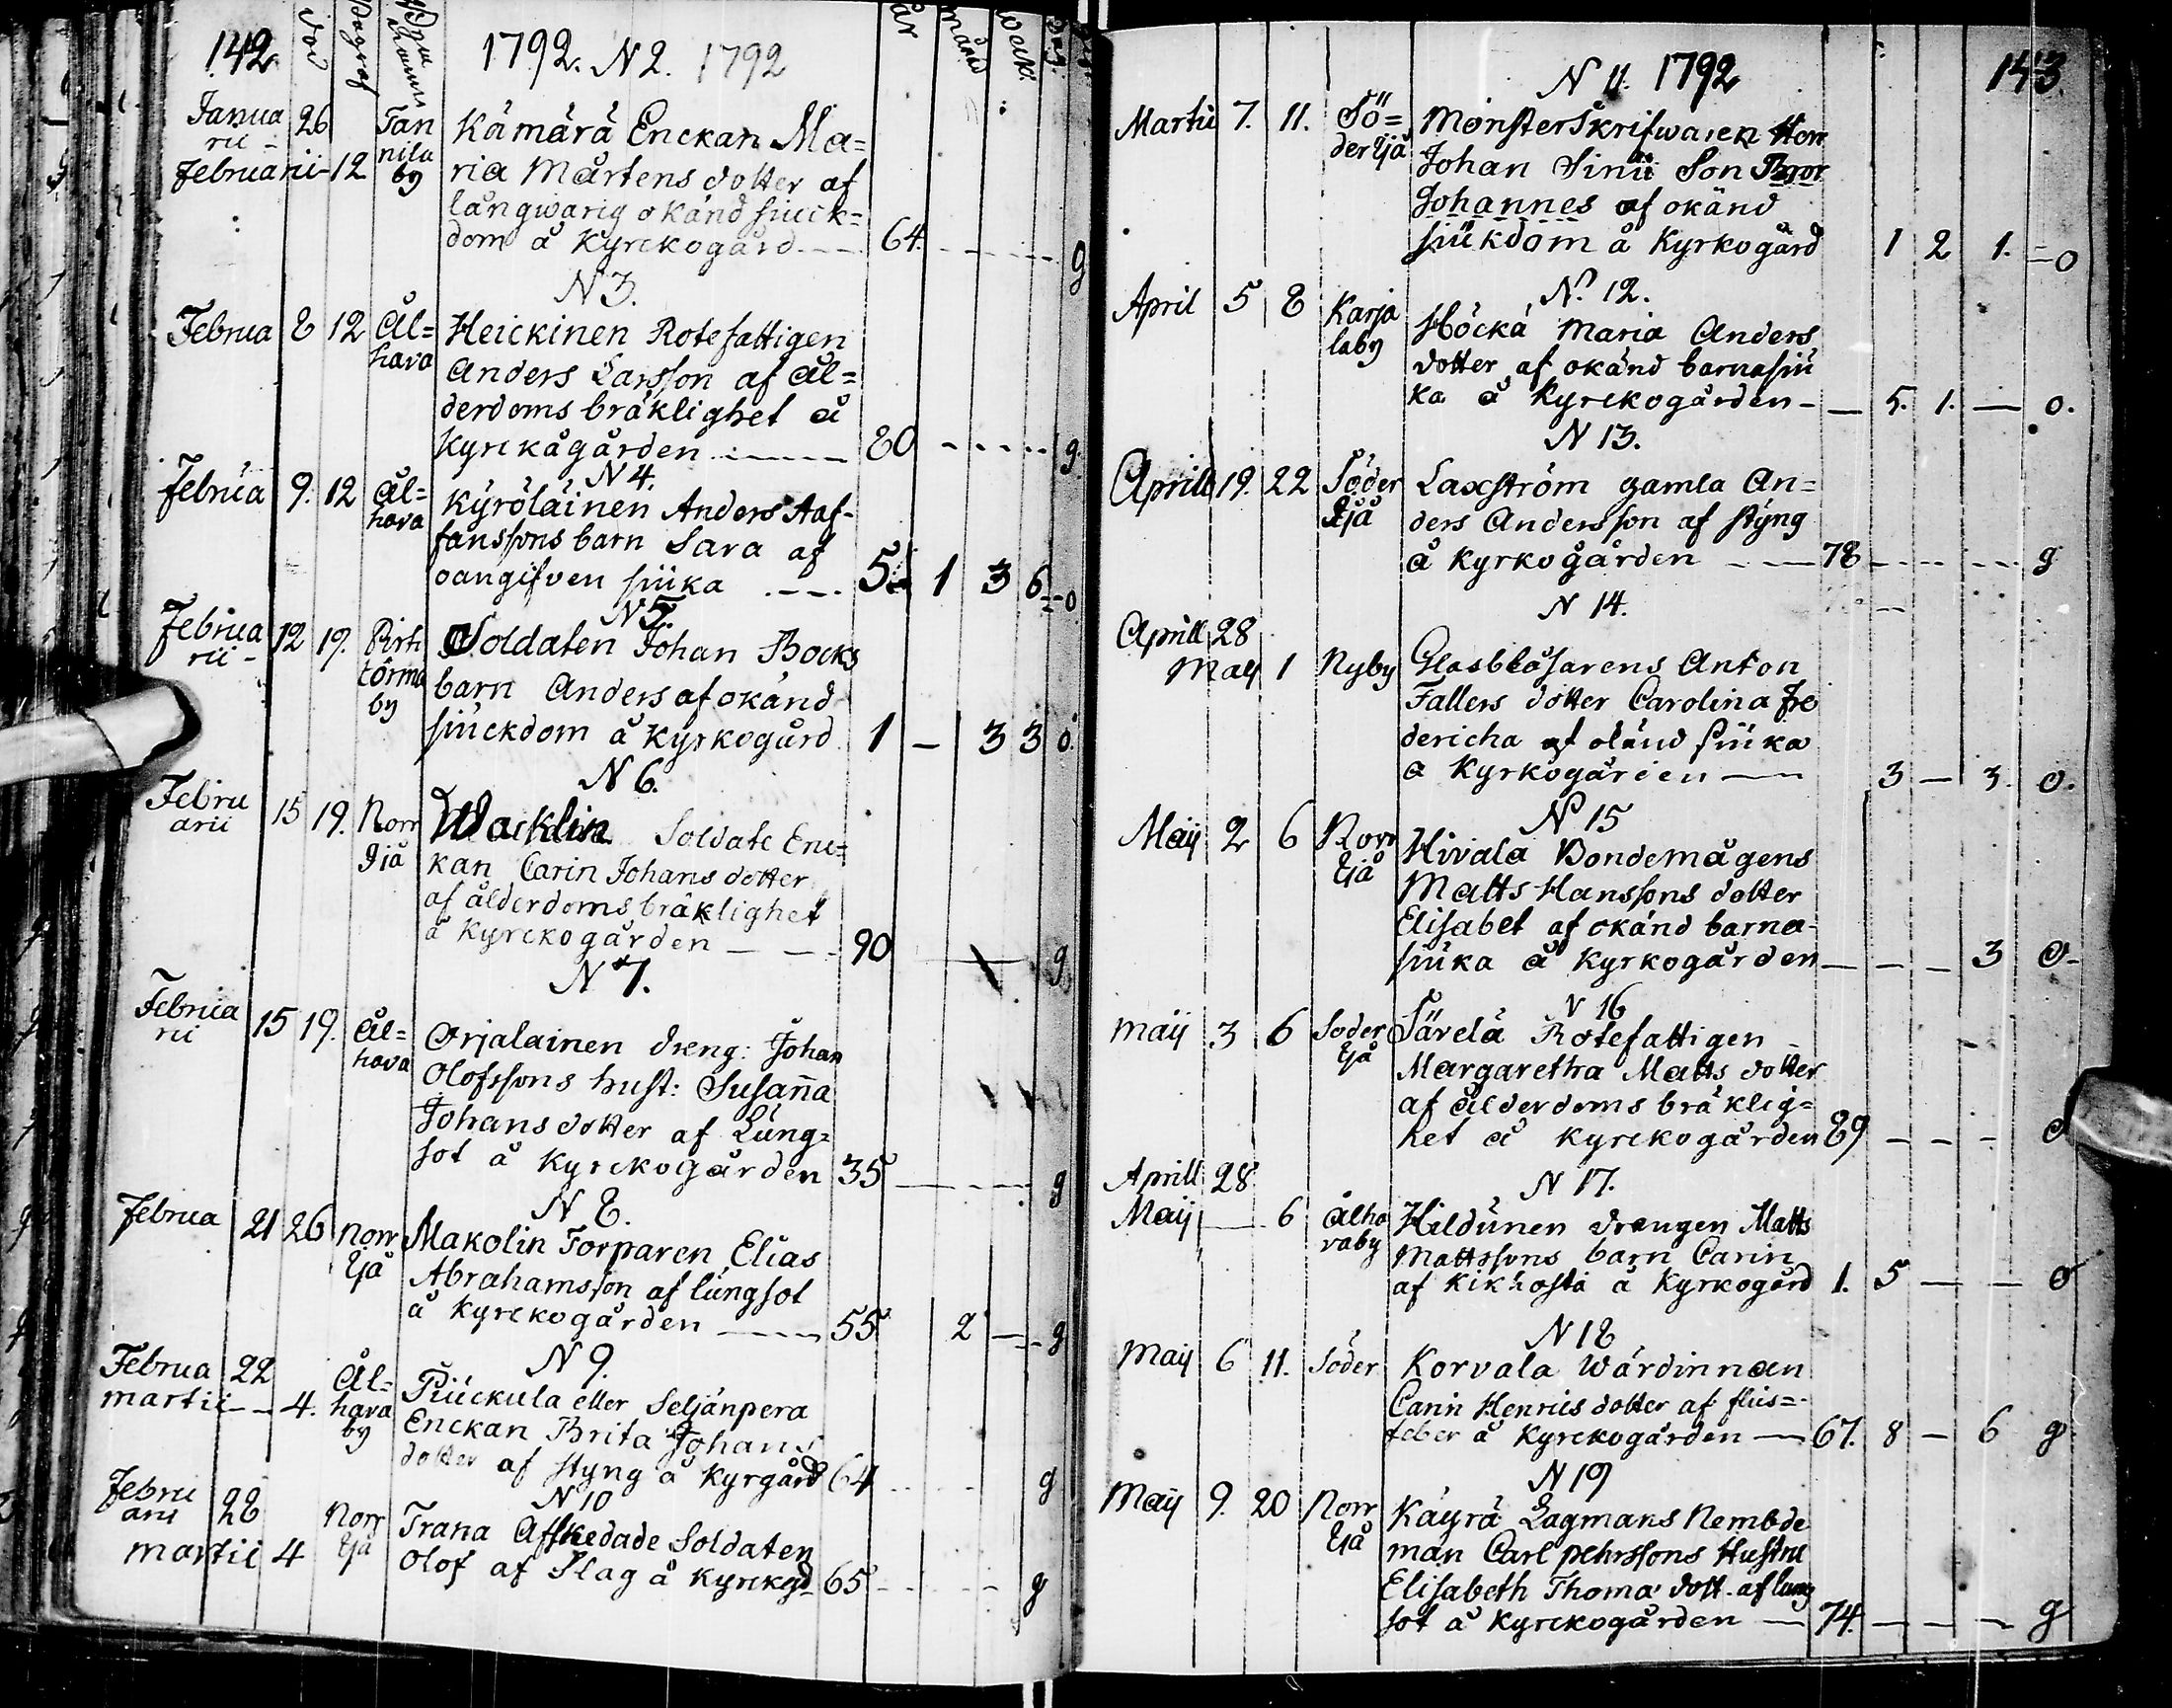 142. död Begraf Byars Namn 1792. N 2. 1792 år månad weck. dag.
Janua 26 Tan Kämärä Enckan Ma=
rii - nila
Februarii - 12 by ria Mårtens dotter af
långwarig okänd siuck=
dom å Kyrckogård 64. g
N 3.
Februa 8 12 Ål= Heickinen Rotefattigen
hava Anders Larsson af ål=
derdoms bräklighet å
Kyrckågården 80 g.
N 4.
Februa 9. 12 Ål= Kyröläinen Anders Staf-
hava fanssons barn Sara af
oangifven siuka 5 1 3 6 o
N 5.
Februa 12 19. Pirt Soldaten Johan Bocks
rii - törmä barn Anders af okänd
by siuckdom å Kyrkogård 1 — 3 3 o.
N 6.
Febru 15 19. Norr Wacklin Soldate Enc=
arii Ejå kan Carin Johans dotter
af ålderdoms bräklighet
å Kyrckogården 90 g
N 7.
Februa 15 19. Ål= Orjalainen dreng: Johan
rii hava Olofssons hust: Susanna
Johans dotter af Lung=
sot å Kyrckogården 35 g
N 8.
Februa 21 26 Norr Makolin Torparen Elias
Ejå Abrahamsson af lungsot
å Kyrckogården 55 2 g
N 9.
Februa 22 Ål= Piuckula eller Seljänpera
martii - 4. hava Enckan Brita Johans
by dotter af styng å Kyrgård 64 g
N 10
Febru 28 Norr Trana Afskedade Soldaten
arii Ejå
martii 4 Olof af Slag å Kyrckgd 65 g
N 11. 1792 143.
Martii 7. 11. Sö= MönsterSkrifwaren Herr
der Ejå Johan Sinii Son Bror
Johannes af okänd
siukdom å Kyrkogård 1 2 1. - o
N. 12.
April 5 8 Karja Höckä Maria Anders
laby dotter af okänd barnasiu
ka å Kyrckogården — 5. 1. — o.
N 13.
Aprill 19. 22 Söder Laxström gamla An=
Ejå ders Andersson af styng
å Kyrkogården 78 g
N 14.
Aprill 28
Maij 1 Nyby Glasblåsarens Anton
Fallers dotter Carolina Fre
dericha af okänd siuka
å Kyrkogården 3 — 3. o.
N 15
Maij 2 6 Norr Hivala Bondemågens
Ejå Matts Hanssons dotter
Elisabet af okänd barna-
siuka å Kyrkogården — — — 3 o-
N 16
Maij 3 6 Söder Särelä Rotefattigen
Ejå Margaretha Matts dotter
af ålderdoms bräklig=
het å Kyrckogården 89 — — —
Aprill 28 N 17.
Maij — 6 Ålha Hildunen drengen Matts
vaby Mattssons barn Carin
af Kikhosta å Kyrkogård 1. 5 — — o
N 18
Maij 6 11. Söder Korvala Wärdinnan
Carin Henrics dotter af flus=
feber å Kyrckogården 67. 8 — 6 g
N 19
Maij 9. 20 Norr Käyrä Lagmans Nembde
Ejå man Carl pehrssons Hustru
Elisabeth Thoma dott. af lung
sot å Kyrckogården — 74. — — — g